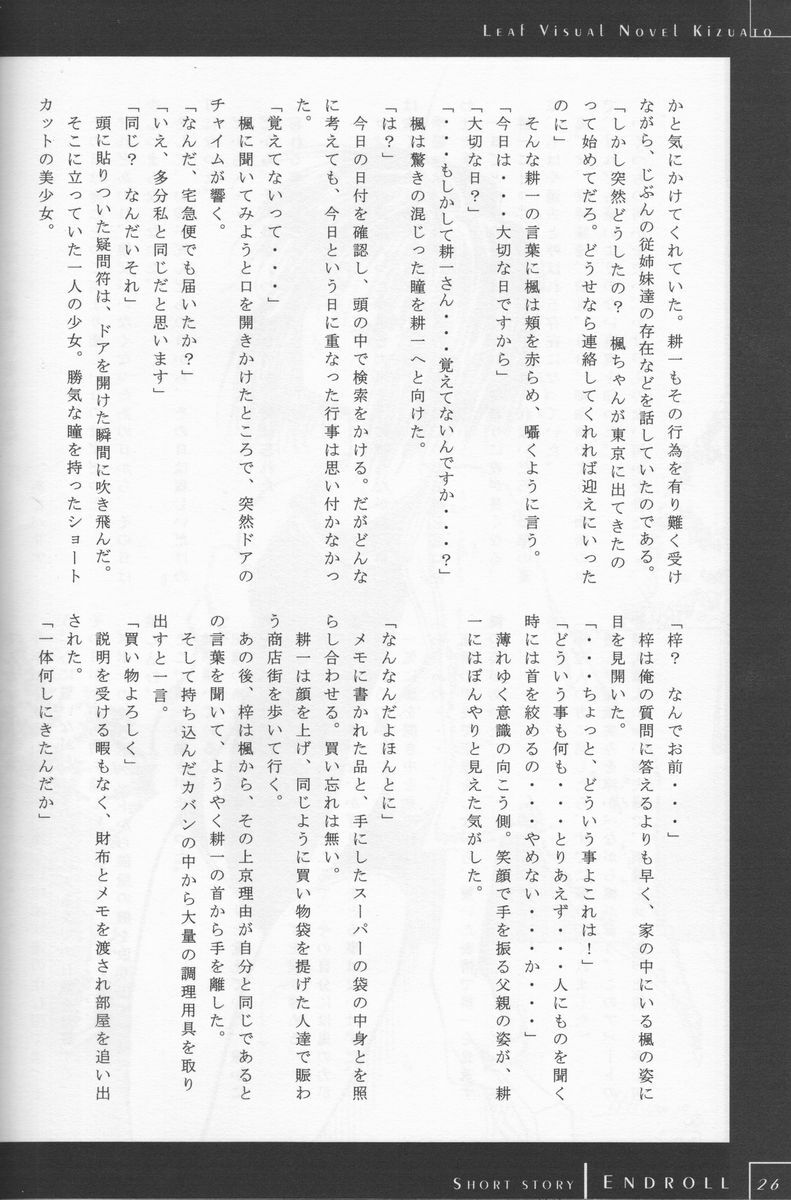 LEAF VISUAL NOVEL KIZUATO
かと気にかけてくれていた。耕一もその行為を有り難く受け
ながら、じぶんの従姉妹達の存在などを話していたのである。
「しかし突然どうしたの？　楓ちゃんが東京に出てきたの
って始めてだろ。どうせなら連絡してくれれば迎えにいった
のに」
そんな耕一の言葉に楓は頬を赤らめ、囁くように言う。
「今日は・・・大切な日ですから」
「大切な日？」
「・・・もしかして耕一さん・・・覚えてないんですか・・・？」
楓は驚きの混じった瞳を耕一へと向けた。
「は？」
今日の日付を確認し、頭の中で検索をかける。だがどんな
に考えても、今日という日に重なった行事は思い付かなかっ
た。
「覚えてないって・・・」
楓に聞いてみようと口を開きかけたところで、突然ドアの
チャイムが響く。
「なんだ、宅急便でも届いたか？」
「いえ、多分私と同じだと思います」
「同じ？　なんだいそれ」
頭に貼りついた疑問符は、ドアを開けた瞬間に吹き飛んだ。
そこに立っていた一人の少女。勝気な瞳を持ったショート
カットの美少女。
「梓？　なんでお前・・・」
梓は俺の質問に答えるよりも早く、家の中にいる楓の姿に
目を見開いた。
「・・・ちょっと、どういう事よこれは！」
「どういう事も何も・・・とりあえず・・・人にものを聞く
時には首を絞めるの・・・やめない・・・か・・・」
薄れゆく意識の向こう側。笑顔で手を振る父親の姿が、耕
一にはぼんやりと見えた気がした。
「なんなんだよほんとに」
メモに書かれた品と、手にしたスーパーの袋の中身とを照
らし合わせる。買い忘れは無い。
耕一は顔を上げ、同じように買い物袋を提げた人達で賑わ
う商店街を歩いて行く。
あの後、梓は楓から、その上京理由が自分と同じであると
の言葉を聞いて、ようやく耕一の首から手を離した。
そして持ち込んだカバンの中から大量の調理用具を取り
出すと一言。
「買い物よろしく」
説明を受ける暇もなく、財布とメモを渡され部屋を追い出
された。
「一体何しにきたんだか」
SHORT STORY
ENDROLL
26